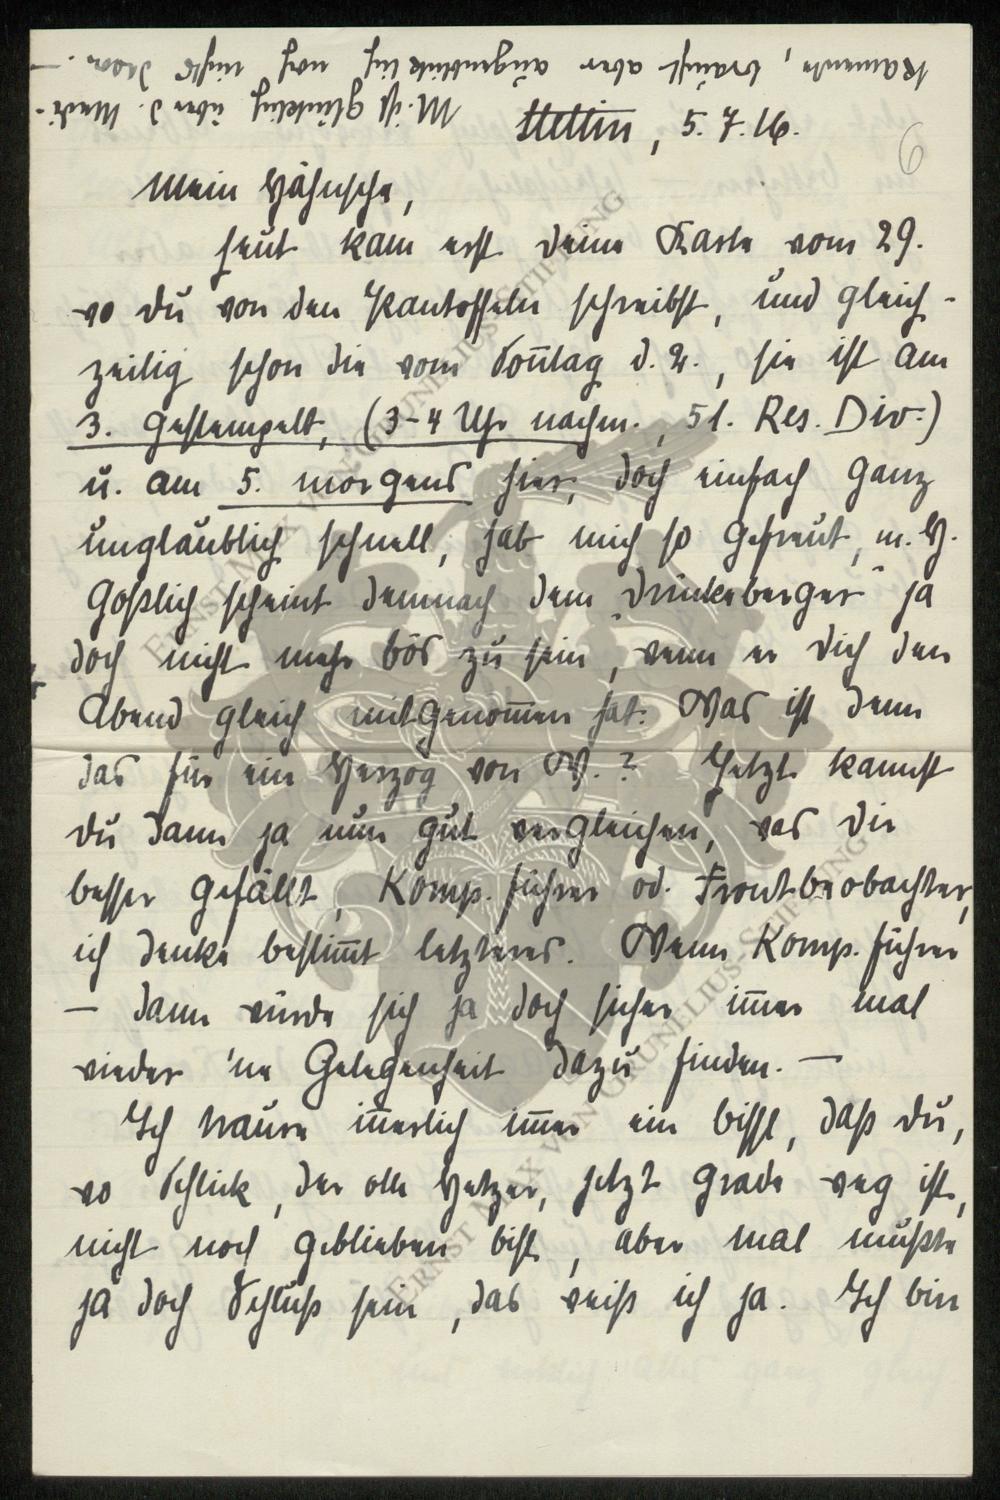 M. ist glücklich über d. Medi-
kamente, braucht aber augenblicklich noch nichts davon. —
Stettin, 5.7.16.
6
Mein Hähnsche,
heut kam erst deine Karte vom 29.
wo du von den Kantoffeln schreibst, und gleich-
zeitig schon die vom Sontag d. 2., sie ist am
3. gestempelt, (3-4 Uhr nachm., 51. Res. Div.)
u. am 5. morgens hier, doch einfach ganz
unglaublich schnell, hab mich so gefreut, m. H.
Goßlich scheint demnach dem „Drückeberger" ja
doch nicht mehr bös zu sein, wenn er dich den
Abend gleich mitgenomen hat. Was ist denn
das für ein Herzog von W.? Jetzt kannst
du dann ja nun gut vergleichen, was dir
besser gefällt, Komp. führer od. Frontbeobachter,
ich denke bestimt letzteres. Wenn Komp. führer
— dann würde sich ja doch sicher imer mal
wieder 'ne Gelegenheit dazu finden. —
Ich traure inerlich imer ein bissl, daß du,
wo Schlick, der olle Hetzer, jetzt grade weg ist,
nicht noch geblieben bist, aber mal mußte
ja doch Schluß sein, das weiß ich ja. Ich bin
ERNST MAX VON GRUNELIUS-STIFTUNG
ERNST MAX VON GRUNELIUS-STIFTUNG